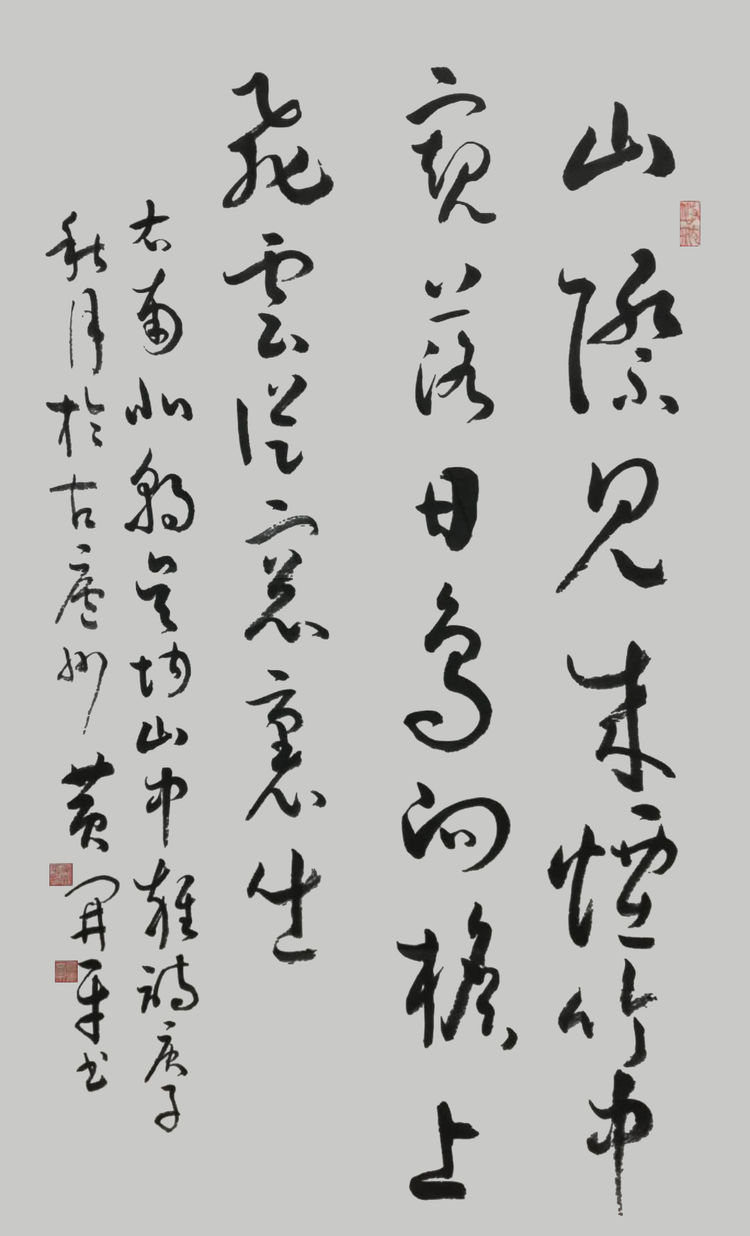 山際見来煙竹中
窺落日鳥向檐上
飛雲從窗裏生
右南北朝吴均山中雜詩庚子
秋月於古廬州黄開平书